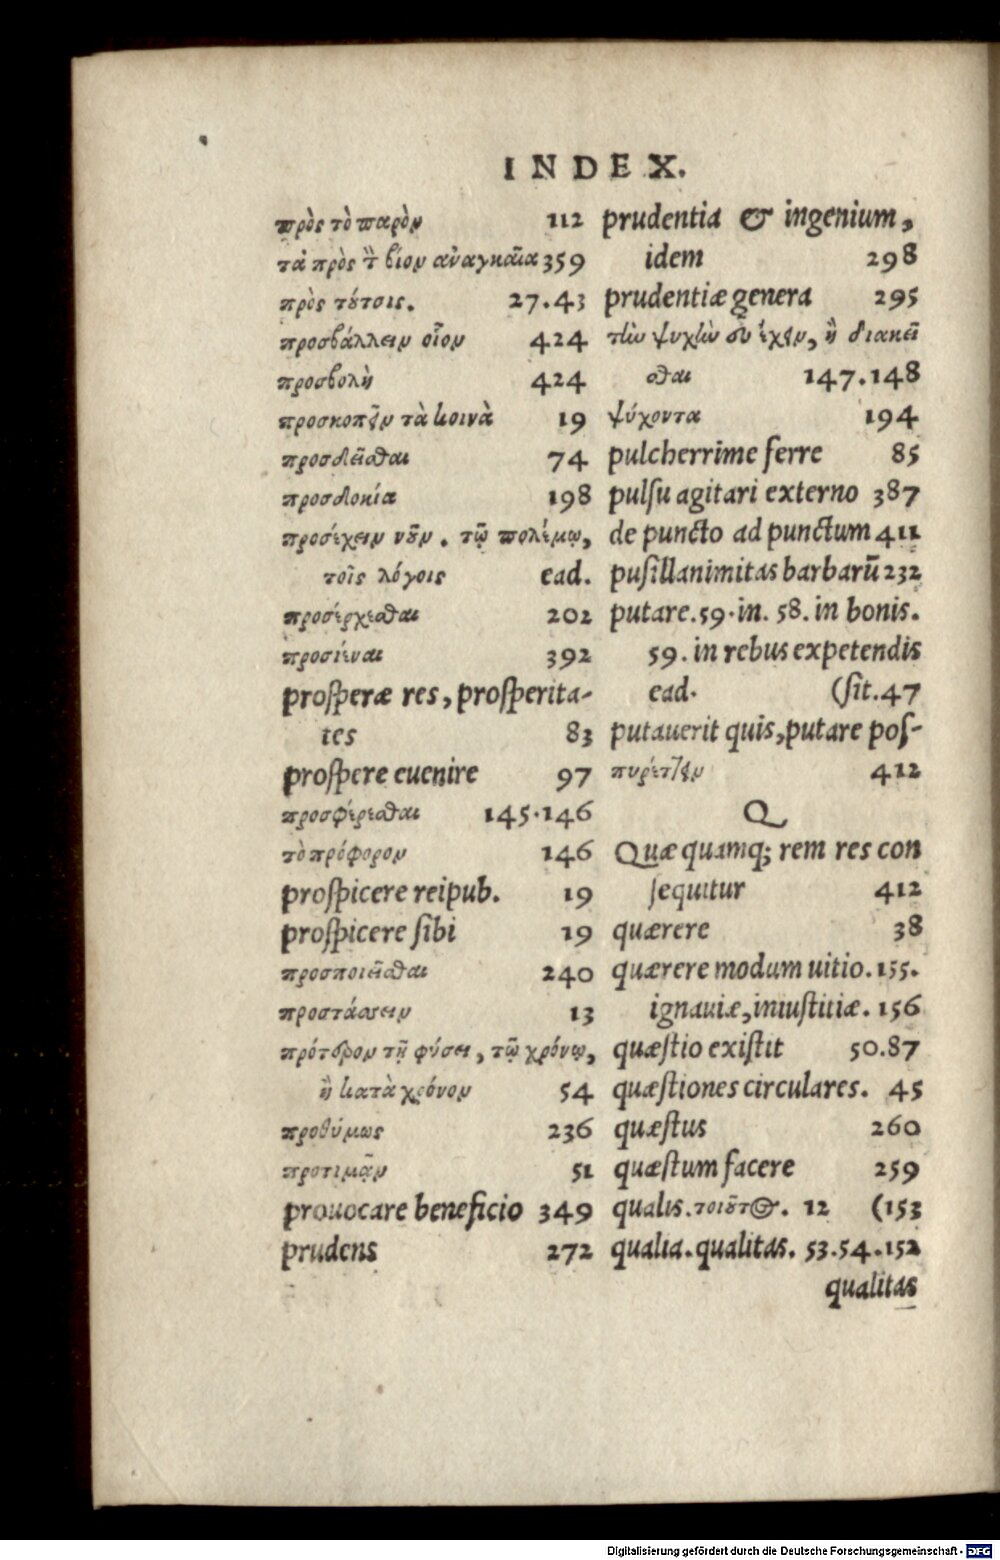 INDEX.
πρὸς τὸ παρὸν 112
τὰ πρὸς τ̀ βίον ἀναγκαῖα 359
πρὸς τούτοις. 27.43
προσβάλλειν οἷον 424
προσβολὴ 424
προσκοπεῖν τὰ κοινὰ 19
προσδεῖσθαι 74
προσδοκία 198
προσέχειν νοῦν. τῷ πολέμῳ,
τοῖς λόγοις ead.
προσέρχεσθαι 202
προσιέναι 392
proſperæ res, proſperita-
tes 83
proſpere euenire 97
προσφέρεσθαι 145.146
τὸ πρόσφορον 146
proſpicere reipub. 19
proſpicere ſibi 19
προσποιεῖσθαι 240
προστάσσειν 13
πρότερον τῇ φύσει, τῷ χρόνῳ,
ἢ κατὰ χρόνον 54
προθύμως 236
προτιμᾷν 51
prouocare beneficio 349
prudens 272
prudentia & ingenium,
idem 298
prudentiæ genera 295
τὴν ψυχὴν εὖ ἔχειν, ἢ διακεῖ
σθαι 147.148
ψύχοντα 194
pulcherrime ferre 85
pulſu agitari externo 387
de puncto ad punctum 411
puſillanimitas barbarũ 232
putare. 59. in. 58. in bonis.
59. in rebus expetendis
ead. (ſit. 47
putauerit quis, putare poſ-
πυρέττειν 412
Q
Quæ quamq; rem res con
ſequitur 412
quærere 38
quærere modum uitio. 155.
ignauiæ, iniuſtitiæ. 156
quæſtio exiſtit 50.87
quæſtiones circulares. 45
quæſtus 260
quæſtum facere 259
qualis. τοιοῦτος. 12 (153
qualia. qualitas. 53.54.152
qualitas
Digitalisierung gefördert durch die Deutsche Forschungsgemeinschaft - DFG